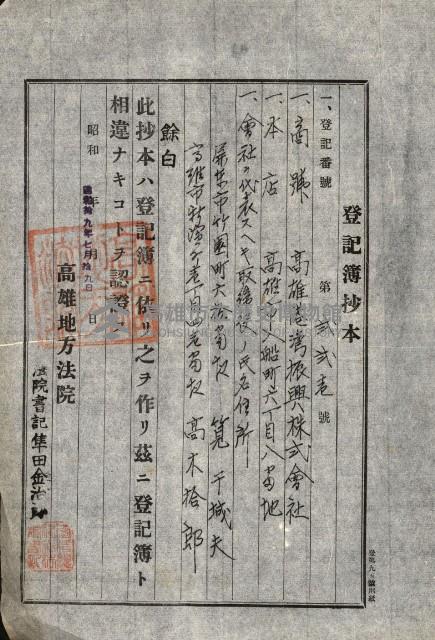 登記簿抄本
一、登記番號 第貳貳壱號
一、商號 高雄港灣振興株式會社
一、本店 高雄市入船町六丁目八番地
一、會社ヲ代表スヘキ取締役ノ氏名住所
屏東市竹園町六拾番地 筧干城夫
高雄市 丁目四番地 高木拾郎
餘白
此抄本ハ登記簿ニ依リ之ヲ作リ茲ニ登記簿ト
相違ナキコトヲ認證ス
昭和 年 月 日
昭和拾九年七月拾九日
高雄地方法院
法院書記 隼田金治